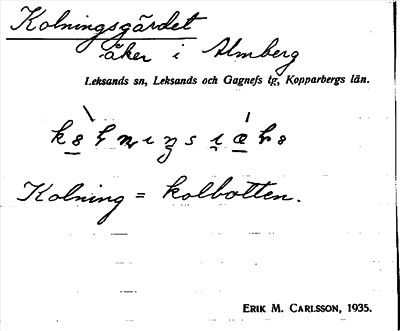 Kolningsgärdet
åker i Almberg
Leksands sn, Leksands och Gagnefs tg, Kopparbergs län.
Kolning = kolbotten.
ERIK M. CARLSSON, 1935.